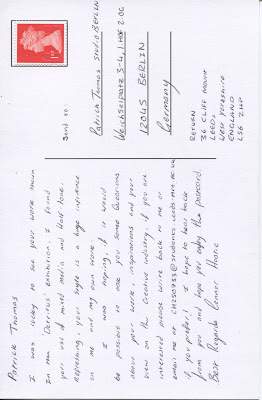 Patrick Thomas
I was lucky to see your work shown
In the 'Detritus' exhibition. I found
your use of mixed media and Half tone
Refreshing, your style is a huge influence
on me and my own work.
I was hoping, if it would
be possible to ask you some Questions
about your work, inspirations and your
view on the Creative industry. If you are
interested please write back to me or
email me at @students.leeds-art.ac.uk
if you prefer! I hope to hear back
from you and hope you enjoy the postcard.
Best Regards Connor
1ST
Send to
Patrick Thomas Studio BERLIN
Weichselplatz 3-4, 1 HOF 2.OG
12045 BERLIN
Germany
RETURN
36 CLIFF MOUNT
LEEDS
WEST YORKSHIRE
ENGLAND
LS6 2HP